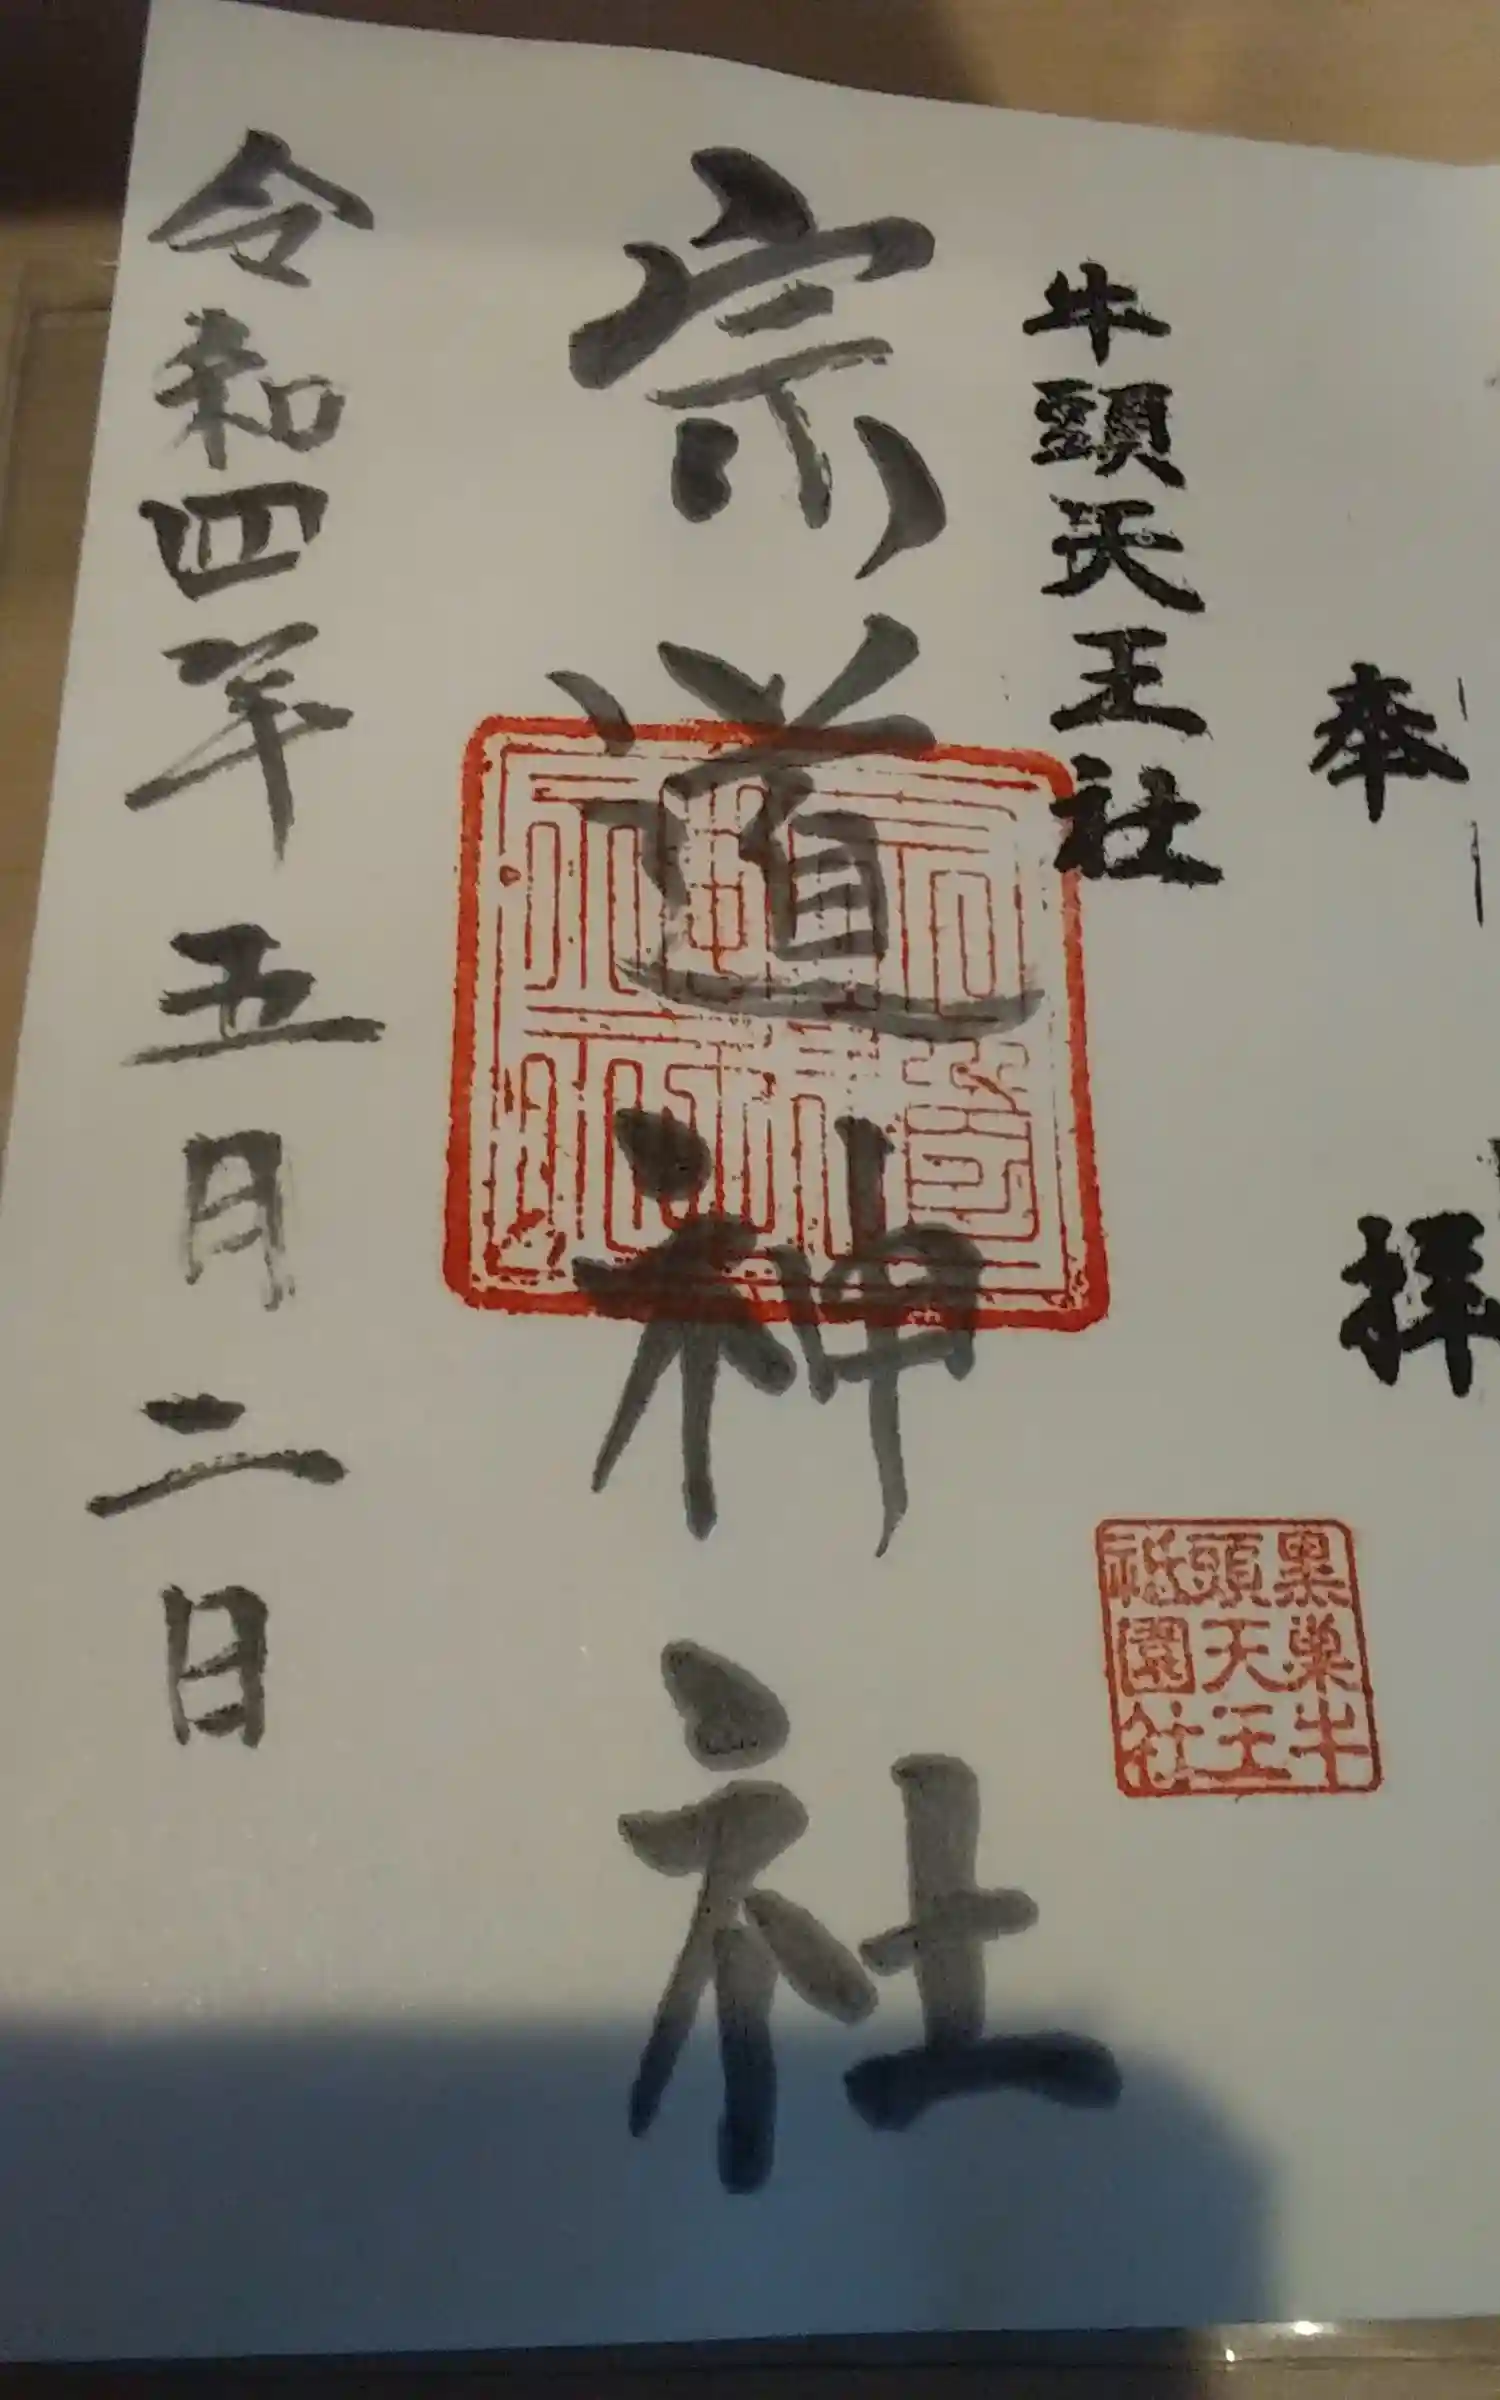 奉拝
牛頭天王社
宗道神社
令和四年五月二日
黒巣牛
頭天王
祇園社